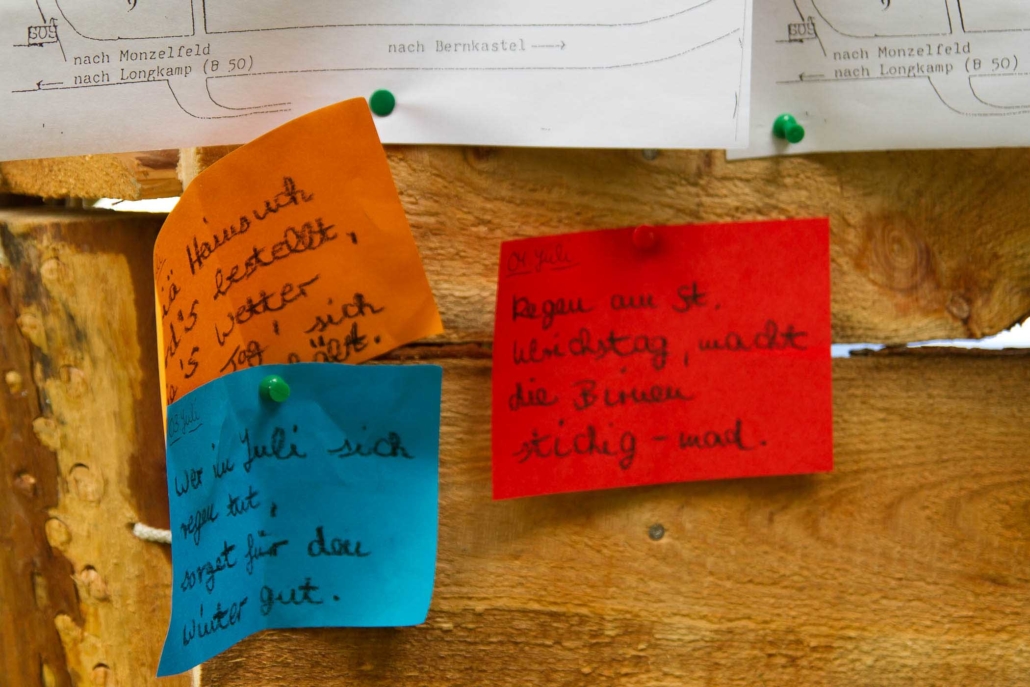 SOS
nach Monzelfeld
nach Longkamp (B 50)
nach Bernkastel
SOS
nach Monzelfeld
nach Longkamp (B 50)
iä Haimsuch
nd's bestellt,
a's Wetter
Tag, sich
hält.
03. Juli
Wer im Juli sich
regen tut,
sorget für den
Winter gut.
04. Juli
Regen am St.
Ulrichstag, macht
die Birnen
stichig-mad.